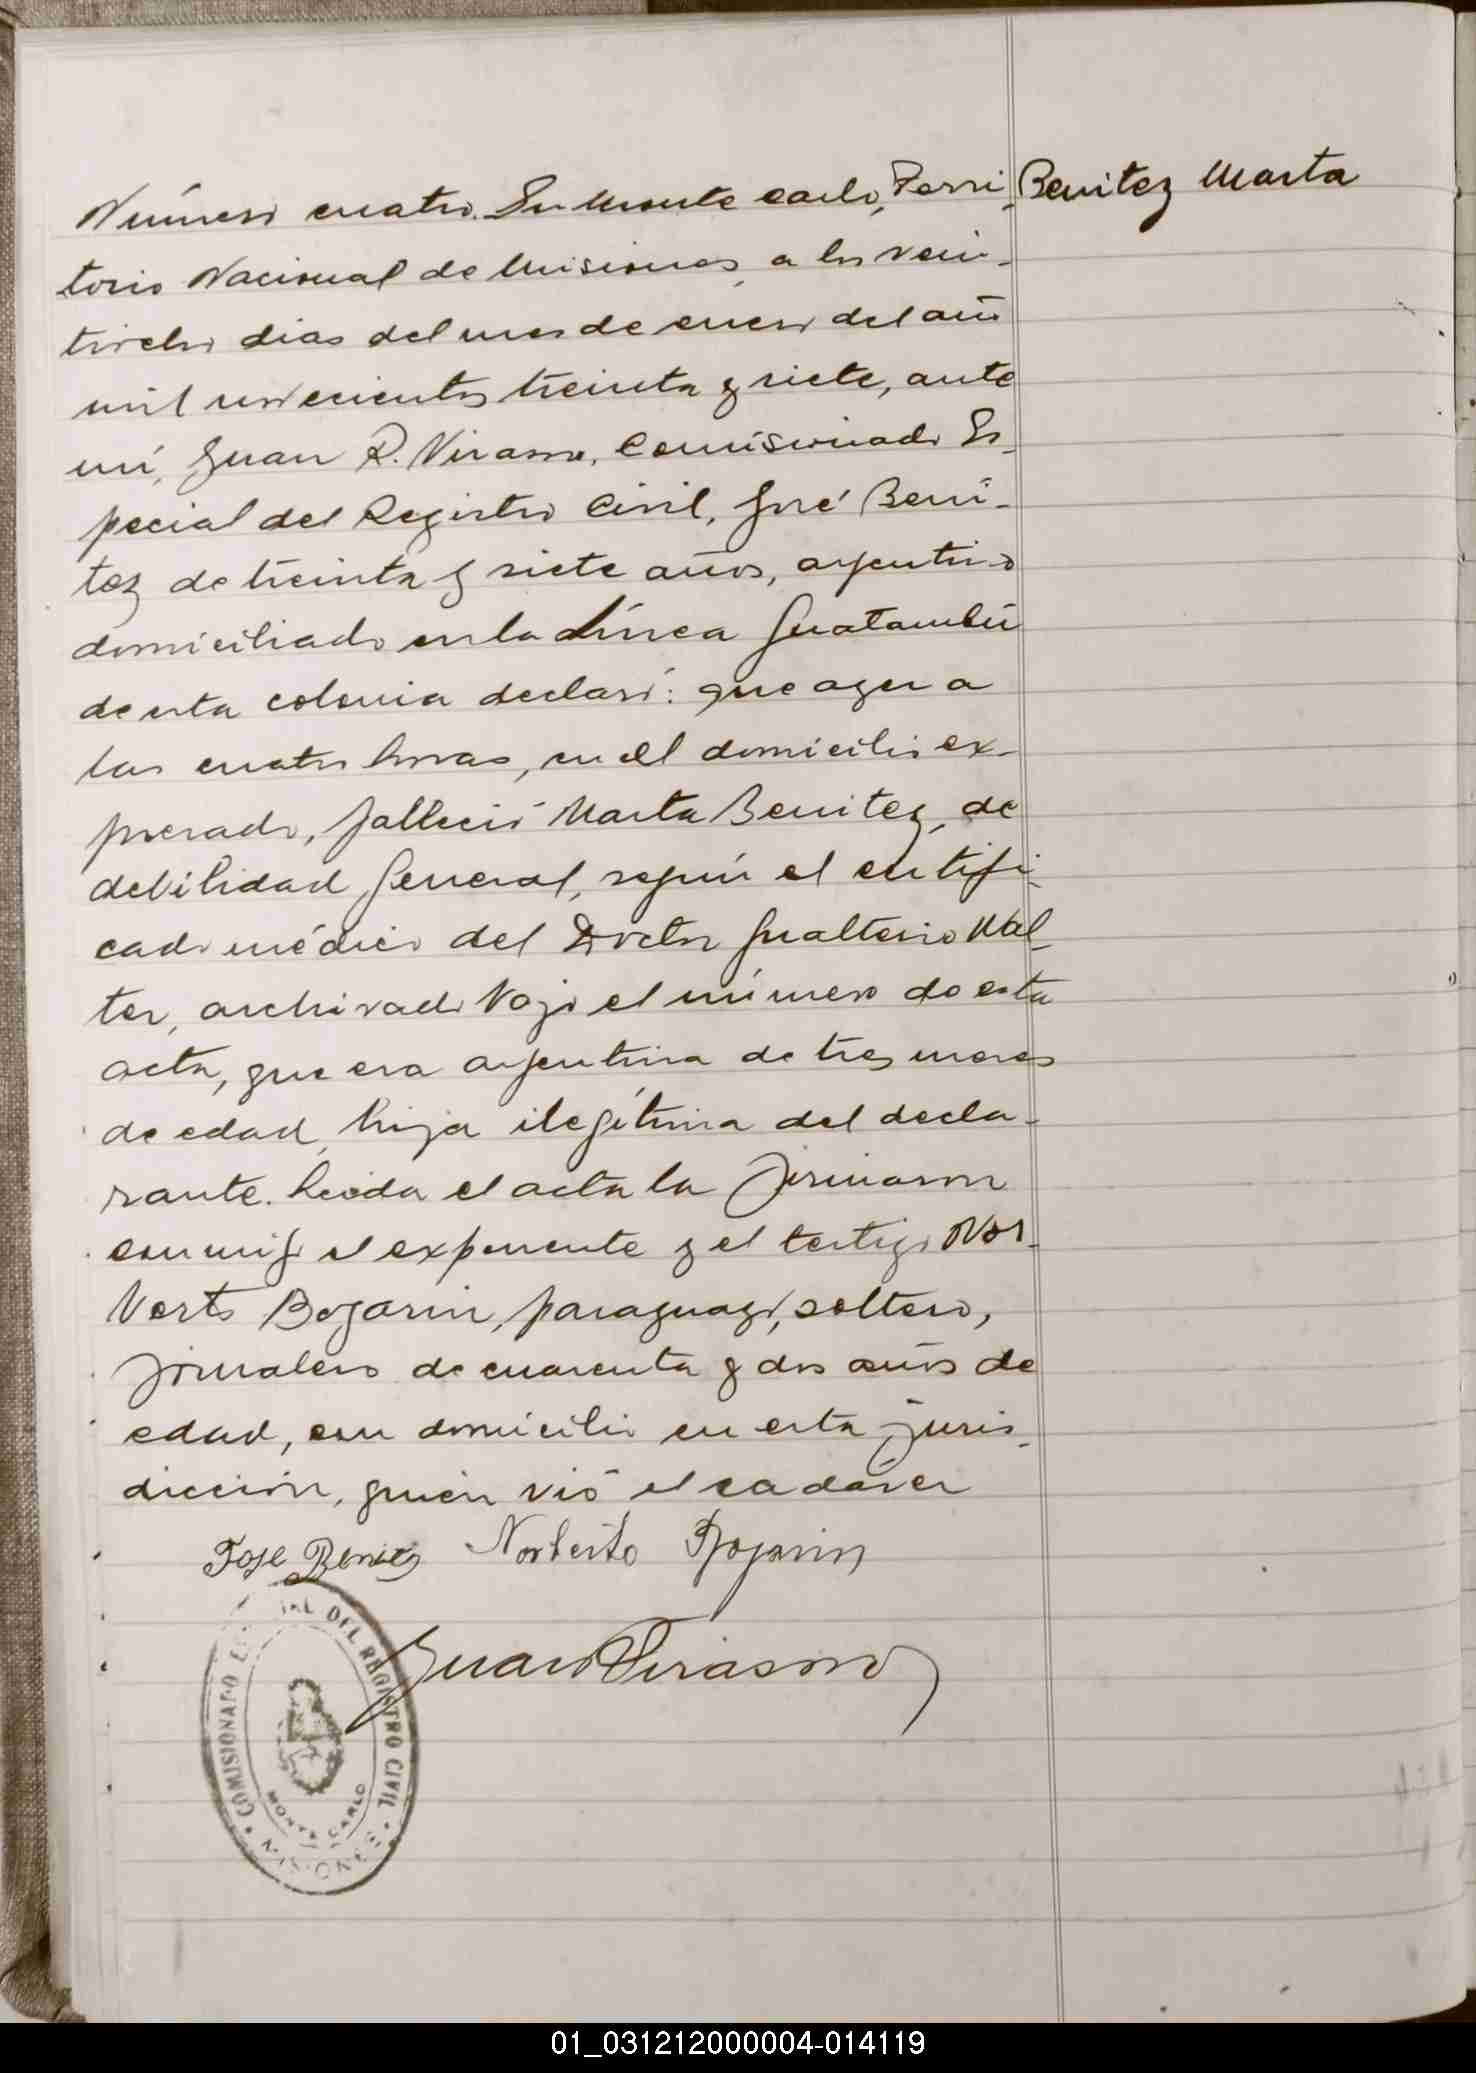 Número cuatro. En Monte Carlo, Terri-
Benitez Marta
torio Nacional de Misiones, a los vein-
tiocho dias del mes de enero del año
mil novecientos treinta y siete, ante
mí, Juan R. Virasoro, Comisionado Es-
pecial del Registro Civil, José Beni-
tez de treinta y siete años, argentino
domiciliado en la Línea Guatambú
de esta colonia declaró: que ayer a
las cuatro horas, en el domicilio ex-
presado, falleció Marta Benitez, de
debilidad general, según el certifi-
cado médico del Doctor Gualterio Wal-
ter, archivado bajo el número de esta
acta, que era argentina de tres meses
de edad, hija ilegítima del decla-
rante. Leida el acta la firmaron
conmigo el exponente y el testigo Nor-
berto Bogarin, paraguayo, soltero,
jornalero de cuarenta y dos años de
edad, con domicilio en esta juris-
dicción, quien vió el cadáver
José Benitez Norberto Bogarin
Juan Virasoro
COMISIONADO ESPECIAL DEL REGISTRO CIVIL
MONTE CARLO
MISIONES
01_031212000004-014119